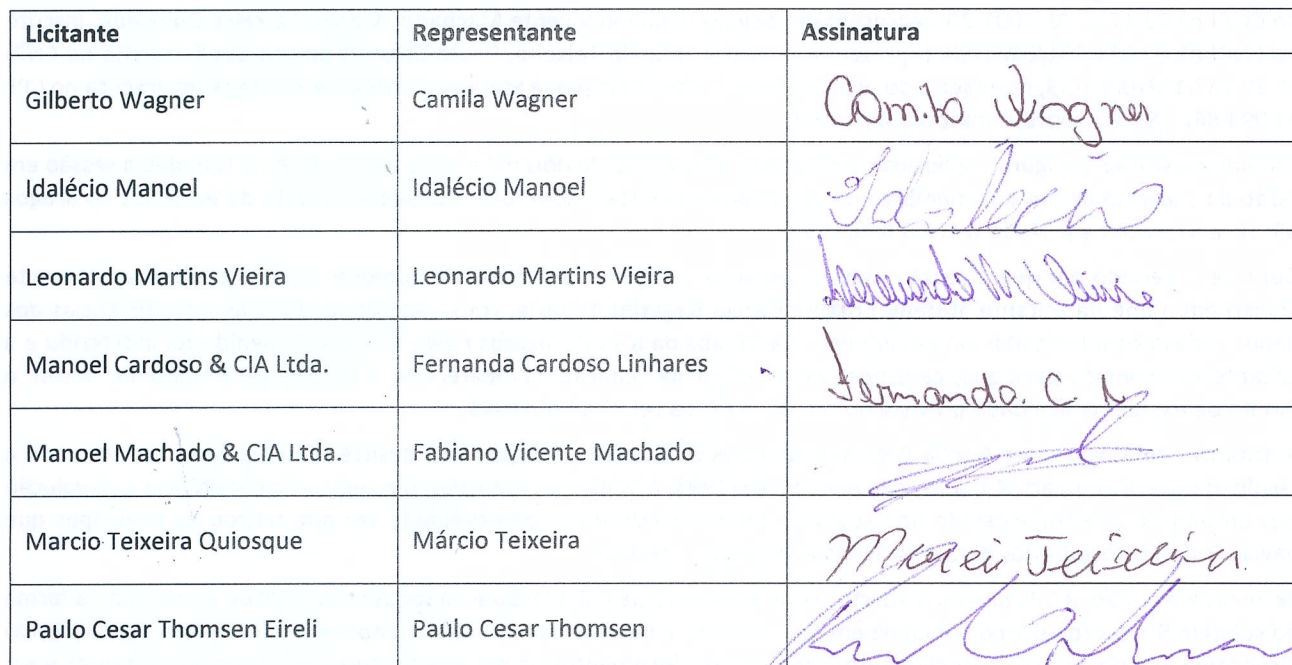 Licitante Representante Assinatura
Gilberto Wagner Camila Wagner Camila Wagner
Idalécio Manoel Idalécio Manoel Idalécio
Leonardo Martins Vieira Leonardo Martins Vieira Leonardo M Vieira
Manoel Cardoso & CIA Ltda. Fernanda Cardoso Linhares Fernanda. C. L
Manoel Machado & CIA Ltda. Fabiano Vicente Machado
Marcio Teixeira Quiosque Márcio Teixeira Marcio Teixeira.
Paulo Cesar Thomsen Eireli Paulo Cesar Thomsen